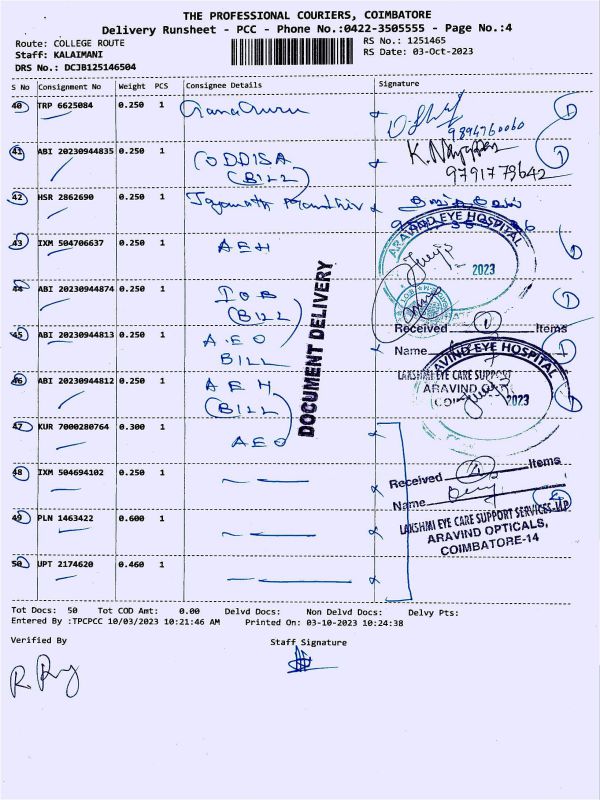 THE PROFESSIONAL COURIERS, COIMBATORE
Delivery Runsheet - PCC - Phone No.:0422-3505555 - Page No.:4
Route: COLLEGE ROUTE
RS No.: 1251465
Staff: KALAIMANI
RS Date: 03-Oct-2023
DRS No.: DCJB125146504
S No Consignment No Weight PCS Consignee Details Signature
40 TRP 6625084 0.250 1
9894760060
41 ABI 20230944835 0.250 1 (ODDISA
(BILL)
9791779642
42 HSR 2862690 0.250 1
43 IXM 504706637 0.250 1 AEH
ARAVIND EYE HOSPITAL
2023
44 ABI 20230944874 0.250 1 IOB
(BILL)
Received 1 Items
45 ABI 20230944813 0.250 1 AEO
BILL
Name
46 ABI 20230944812 0.250 1 AEH
(BILL)
DOCUMENT DELIVERY
ARAVIND EYE HOSPITAL
LAKSHMI EYE CARE SUPPORT
ARAVIND
2023
47 KUR 7000280764 0.300 1 AEO
48 IXM 504694102 0.250 1
Received Items
Name
49 PLN 1463422 0.600 1
LAKSHMI EYE CARE SUPPORT SERVICES LLP
ARAVIND OPTICALS,
COIMBATORE-14
50 UPT 2174620 0.460 1
Tot Docs: 50 Tot COD Amt: 0.00 Delvd Docs: Non Delvd Docs: Delvy Pts:
Entered By :TPCPCC 10/03/2023 10:21:46 AM Printed On: 03-10-2023 10:24:38
Verified By Staff Signature